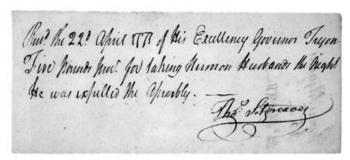 Rec'd the 22d April 1771 of His Excellency Governor Tryon
Five Pounds Proc. for taking Hermon Husbands the Night
He was expelled the Assembly. —
Tho.s